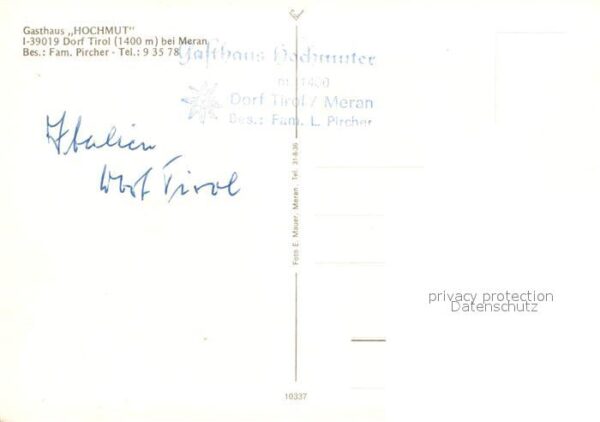 Gasthaus „HOCHMUT"
I-39019 Dorf Tirol (1400 m) bei Meran
Bes.: Fam. Pircher - Tel.: 9 35 78
Gasthaus Hochmuter
m 1400
Dorf Tirol / Meran
Bes.: Fam. L. Pircher
Italien
Dorf Tirol
Foto E. Mauer, Meran - Tel. 31-6-35
privacy protection
Datenschutz
10337